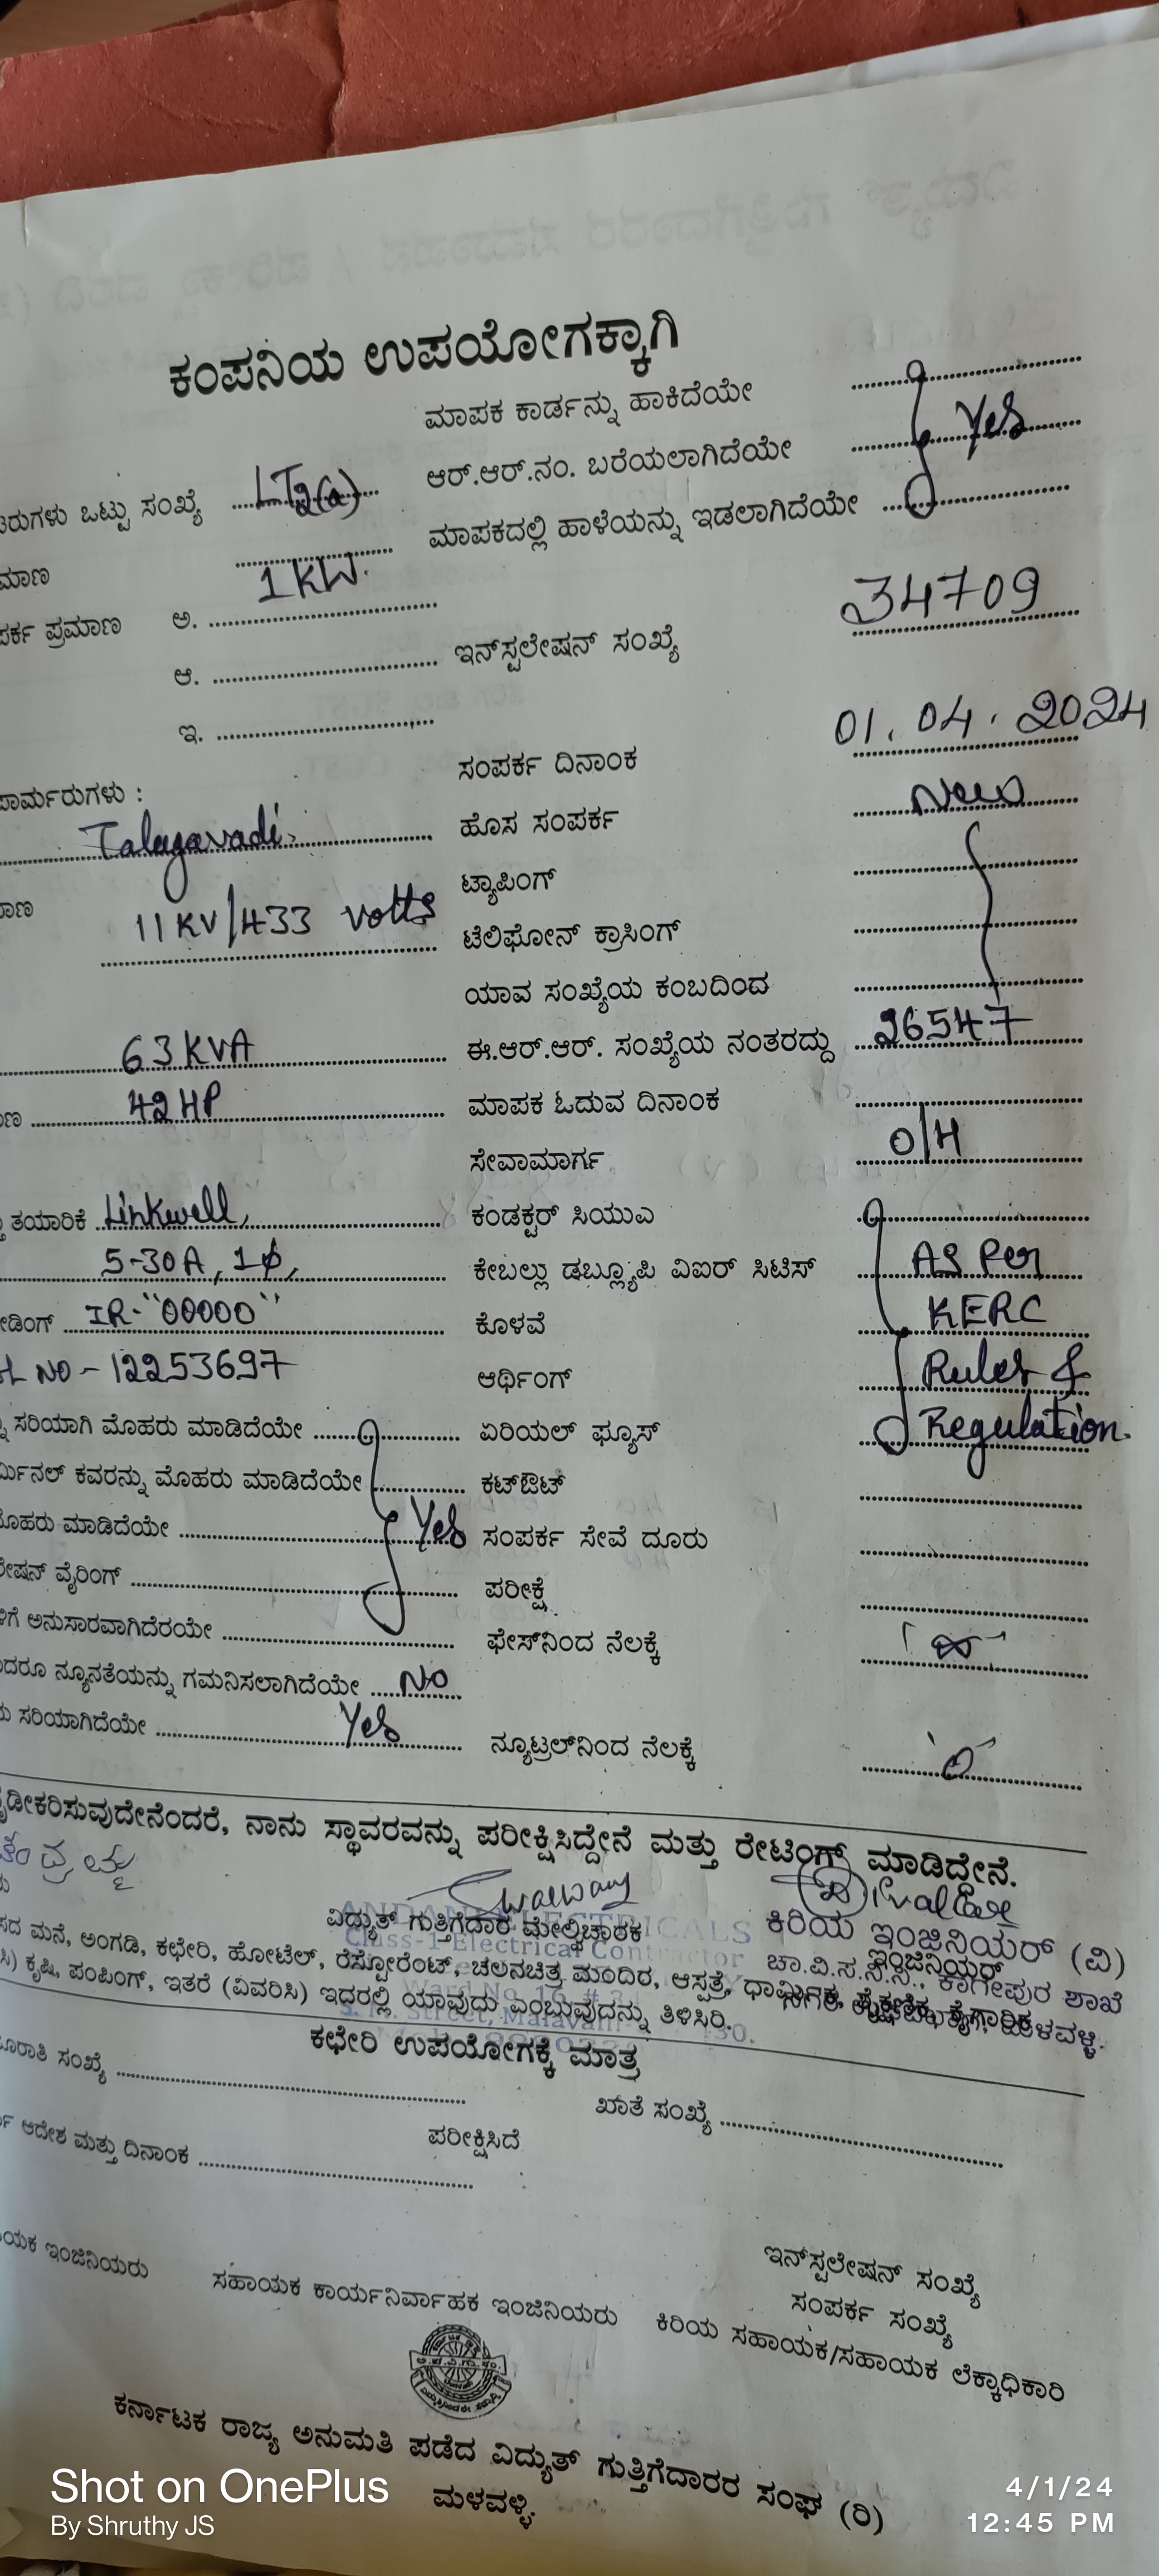 ಕಂಪನಿಯ ಉಪಯೋಗಕ್ಕಾಗಿ
ಮಾಪಕ ಕಾರ್ಡನ್ನು ಹಾಕಿದೆಯೇ
ರುಗಳು ಒಟ್ಟು ಸಂಖ್ಯೆ LT2(a) ಆರ್.ಆರ್.ನಂ. ಬರೆಯಲಾಗಿದೆಯೇ Yes
ಮಾಣ 1 KW. ಮಾಪಕದಲ್ಲಿ ಹಾಳೆಯನ್ನು ಇಡಲಾಗಿದೆಯೇ
ಪರ್ಕ ಪ್ರಮಾಣ ಅ.
ಆ. ಇನ್‌ಸ್ಟಲೇಷನ್ ಸಂಖ್ಯೆ 34709
ಇ.
ಸಂಪರ್ಕ ದಿನಾಂಕ 01.04.2024
ಫಾರ್ಮರುಗಳು :
Talagavadi. ಹೊಸ ಸಂಪರ್ಕ New
ಮಾಣ ಟ್ಯಾಪಿಂಗ್
11 KV/433 Volts ಟೆಲಿಫೋನ್ ಕ್ರಾಸಿಂಗ್
ಯಾವ ಸಂಖ್ಯೆಯ ಕಂಬದಿಂದ
63 KVA ಈ.ಆರ್.ಆರ್. ಸಂಖ್ಯೆಯ ನಂತರದ್ದು 26547
ಣ 42 HP ಮಾಪಕ ಓದುವ ದಿನಾಂಕ
ಸೇವಾಮಾರ್ಗ O/H
ತಯಾರಿಕೆ Linkwell, ಕಂಡಕ್ಟರ್ ಸಿಯುಎ
5-30A, 1ϕ, ಕೇಬಲ್ಲು ಡಬ್ಲ್ಯೂಪಿ ವಿಐರ್ ಸಿಟಿಸ್ AS Per
ೀಡಿಂಗ್ IR-"00000" ಕೊಳವೆ KERC
NO - 12253697 ಆರ್ಥಿಂಗ್ Rules &
ಸರಿಯಾಗಿ ಮೊಹರು ಮಾಡಿದೆಯೇ ಏರಿಯಲ್ ಫ್ಯೂಸ್ Regulation.
ರ್ಮಿನಲ್ ಕವರನ್ನು ಮೊಹರು ಮಾಡಿದೆಯೇ ಕಟ್‌ಔಟ್
ಮೊಹರು ಮಾಡಿದೆಯೇ Yes ಸಂಪರ್ಕ ಸೇವೆ ದೂರು
ೇಷನ್ ವೈರಿಂಗ್ ಪರೀಕ್ಷೆ
ಳಿಗೆ ಅನುಸಾರವಾಗಿದೆರಯೇ ಫೇಸ್‌ನಿಂದ ನೆಲಕ್ಕೆ
ದರೂ ನ್ಯೂನತೆಯನ್ನು ಗಮನಿಸಲಾಗಿದೆಯೇ NO
ಸರಿಯಾಗಿದೆಯೇ Yes ನ್ಯೂಟ್ರಲ್‌ನಿಂದ ನೆಲಕ್ಕೆ
ೃಡೀಕರಿಸುವುದೇನೆಂದರೆ, ನಾನು ಸ್ಥಾವರವನ್ನು ಪರೀಕ್ಷಿಸಿದ್ದೇನೆ ಮತ್ತು ರೇಟಿಂಗ್ ಮಾಡಿದ್ದೇನೆ.
ವಿದ್ಯುತ್ ಗುತ್ತಿಗೆದಾರ ಮೇಲ್ವಿಚಾರಕ ಕಿರಿಯ ಇಂಜಿನಿಯರ್ (ವಿ)
Class-1 Electrical Contractor ಇಂಜಿನಿಯರ್
ಚಾ.ವಿ.ಸ.ನಿ.ನಿ., ಕಾಗೇಪುರ ಶಾಖೆ
ಮಳವಳ್ಳಿ.
ಸದ ಮನೆ, ಅಂಗಡಿ, ಕಛೇರಿ, ಹೋಟೆಲ್, ರೆಸ್ಟೋರೆಂಟ್, ಚಲನಚಿತ್ರ ಮಂದಿರ, ಆಸ್ಪತ್ರೆ, ಧಾರ್ಮಿಕ, ಶೈಕ್ಷಣಿಕ, ಕೈಗಾರಿಕ
ಸಿ) ಕೃಷಿ, ಪಂಪಿಂಗ್, ಇತರೆ (ವಿವರಿಸಿ) ಇದರಲ್ಲಿ ಯಾವುದು ಎಂಬುವುದನ್ನು ತಿಳಿಸಿರಿ.
ಕಛೇರಿ ಉಪಯೋಗಕ್ಕೆ ಮಾತ್ರ
ೂರಾತಿ ಸಂಖ್ಯೆ ಖಾತೆ ಸಂಖ್ಯೆ
ಆದೇಶ ಮತ್ತು ದಿನಾಂಕ ಪರೀಕ್ಷಿಸಿದೆ
ಇನ್‌ಸ್ಟಲೇಷನ್ ಸಂಖ್ಯೆ
ಸಂಪರ್ಕ ಸಂಖ್ಯೆ
ಯಕ ಇಂಜಿನಿಯರು ಸಹಾಯಕ ಕಾರ್ಯನಿರ್ವಾಹಕ ಇಂಜಿನಿಯರು ಕಿರಿಯ ಸಹಾಯಕ/ಸಹಾಯಕ ಲೆಕ್ಕಾಧಿಕಾರಿ
ಕರ್ನಾಟಕ ರಾಜ್ಯ ಅನುಮತಿ ಪಡೆದ ವಿದ್ಯುತ್ ಗುತ್ತಿಗೆದಾರರ ಸಂಘ (ರಿ)
ಮಳವಳ್ಳಿ.
Shot on OnePlus
By Shruthy JS
4/1/24
12:45 PM